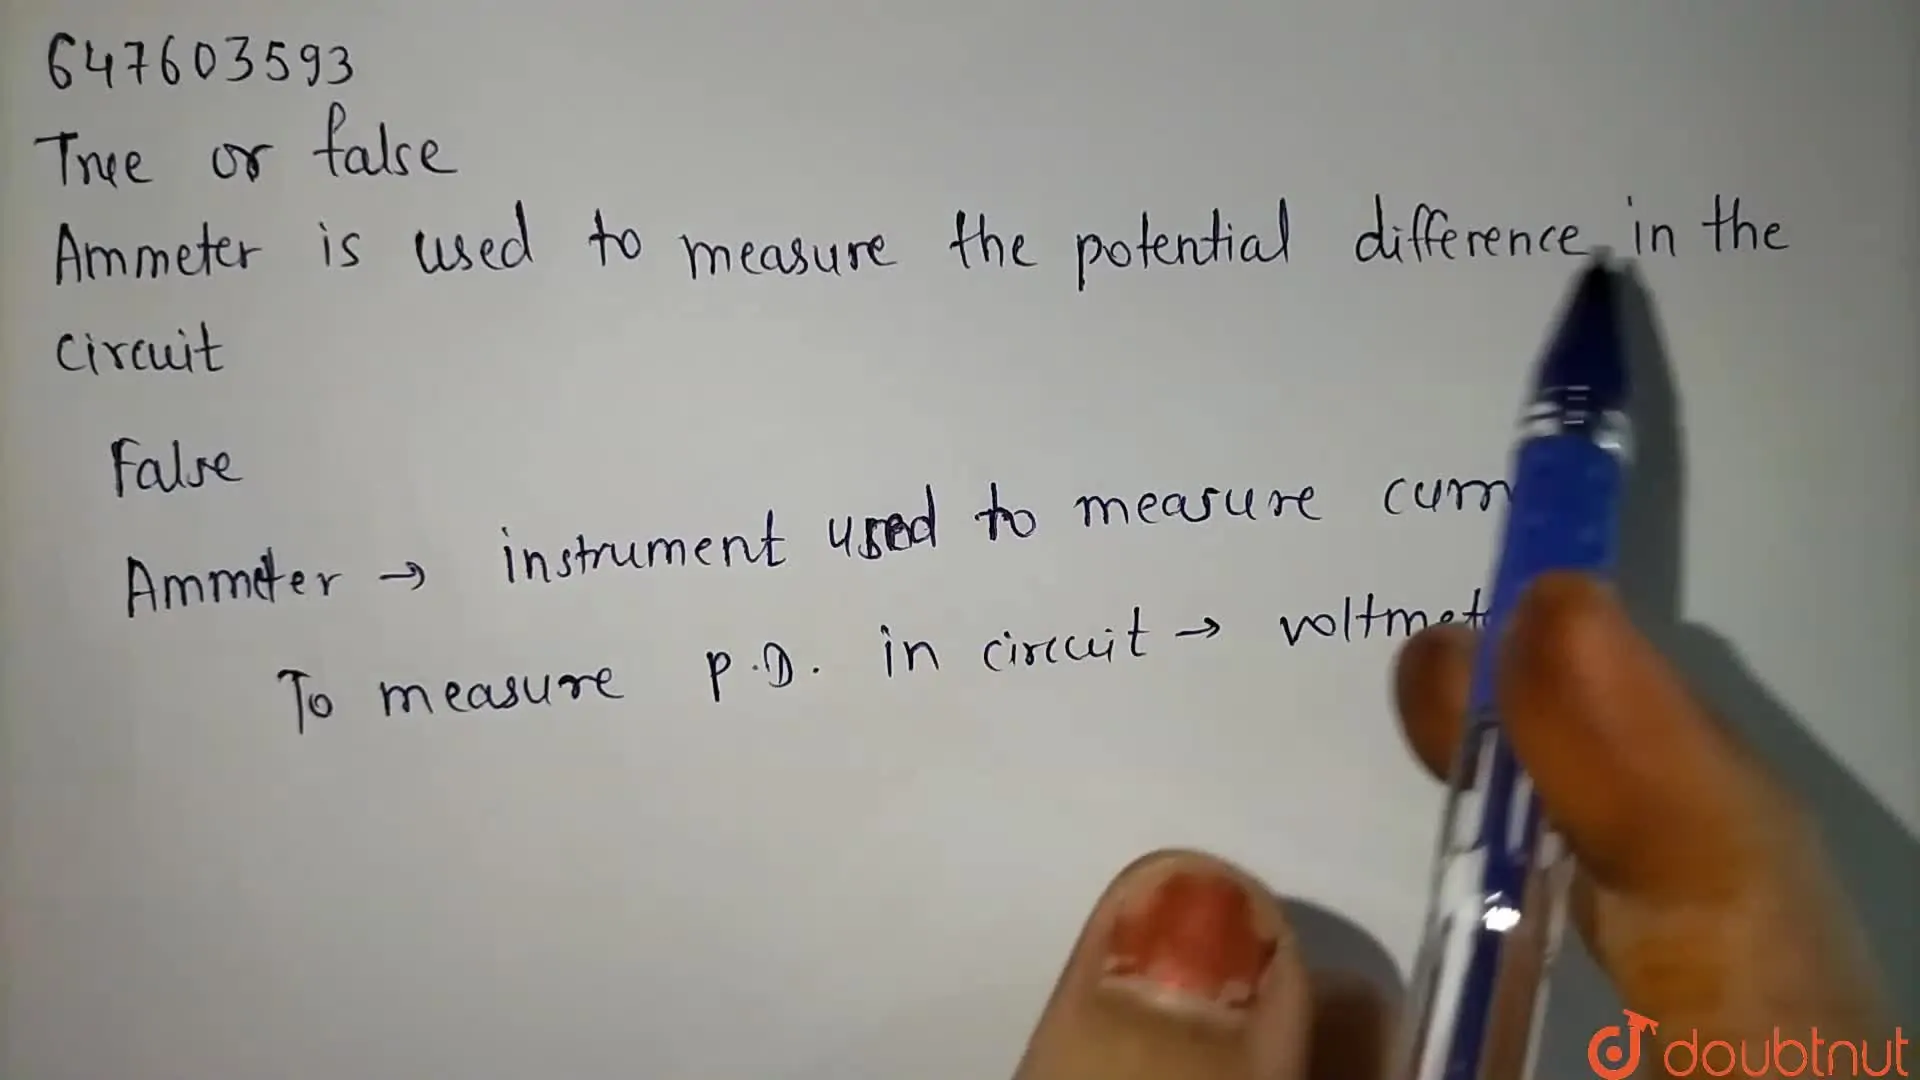 647603593
True or false
Ammeter is used to measure the potential difference in the
circuit
False
Ammeter → instrument used to measure
To measure P.D. in circuit →
doubtnut